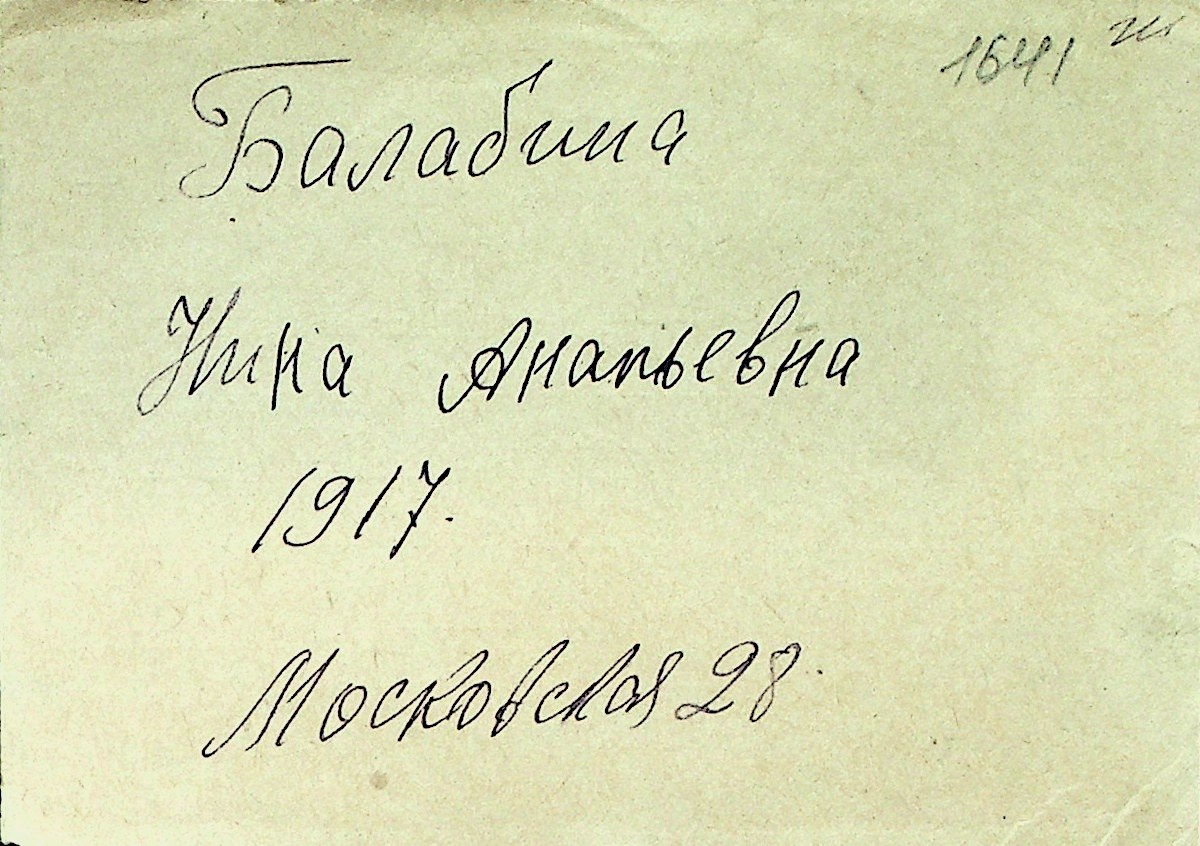 1641
Балабина
Нина Ананьевна
1917.
Московская 28.